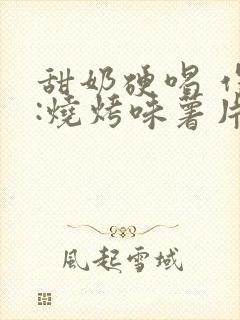 甜奶硬唱
:燒烤味薯片
風起雪域